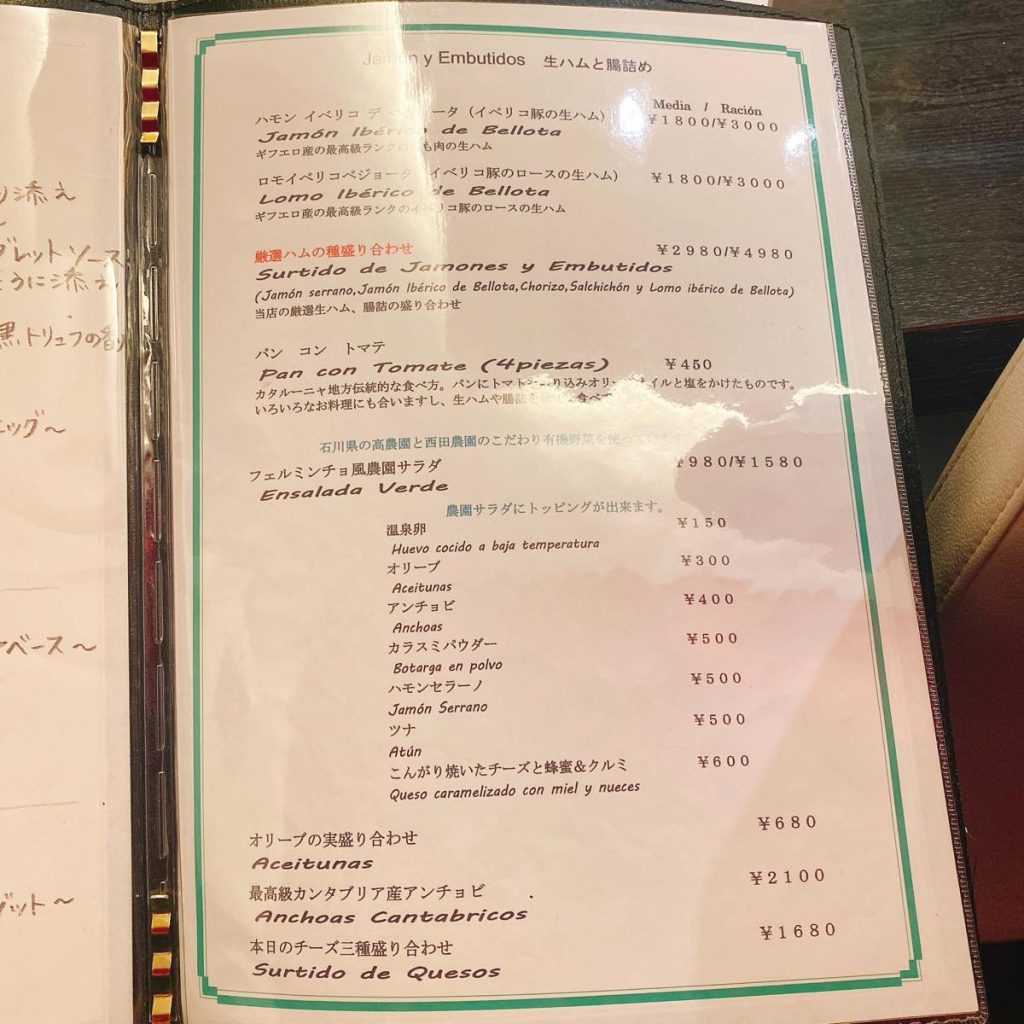 り添え
～
グレットソース
うに添え
黒トリュフの香り
エッグ～
ベース～
ット～
Jamón y Embutidos 生ハムと腸詰め
Media / Ración
ハモン イベリコ デ ータ（イベリコ豚の生ハム） ¥1800/¥3000
Jamón Ibérico de Bellota
ギフエロ産の最高級ランクの も肉の生ハム
ロモイベリコベジョータ（イベリコ豚のロースの生ハム） ¥1800/¥3000
Lomo Ibérico de Bellota
ギフエロ産の最高級ランクのイベリコ豚のロースの生ハム
厳選ハムの種盛り合わせ ¥2980/¥4980
Surtido de Jamones y Embutidos
(Jamón serrano,Jamón Ibérico de Bellota,Chorizo,Salchichón y Lomo ibérico de Bellota)
当店の厳選生ハム、腸詰の盛り合わせ
パン コン トマテ
Pan con Tomate (4piezas) ¥450
カタルーニャ地方伝統的な食べ方。パンにトマト り込みオリ イルと塩をかけたものです。
いろいろなお料理にも合いますし、生ハムや腸詰を 食べて
石川県の高農園と西田農園のこだわり有機野菜を使っています
フェルミンチョ風農園サラダ ¥980/¥1580
Ensalada Verde
農園サラダにトッピングが出来ます。
温泉卵 ¥150
Huevo cocido a baja temperatura
オリーブ ¥300
Aceitunas
アンチョビ ¥400
Anchoas
カラスミパウダー ¥500
Botarga en polvo
ハモンセラーノ ¥500
Jamón Serrano
ツナ ¥500
Atún
こんがり焼いたチーズと蜂蜜＆クルミ ¥600
Queso caramelizado con miel y nueces
オリーブの実盛り合わせ ¥680
Aceitunas
最高級カンタブリア産アンチョビ . ¥2100
Anchoas Cantabricos
本日のチーズ三種盛り合わせ ¥1680
Surtido de Quesos